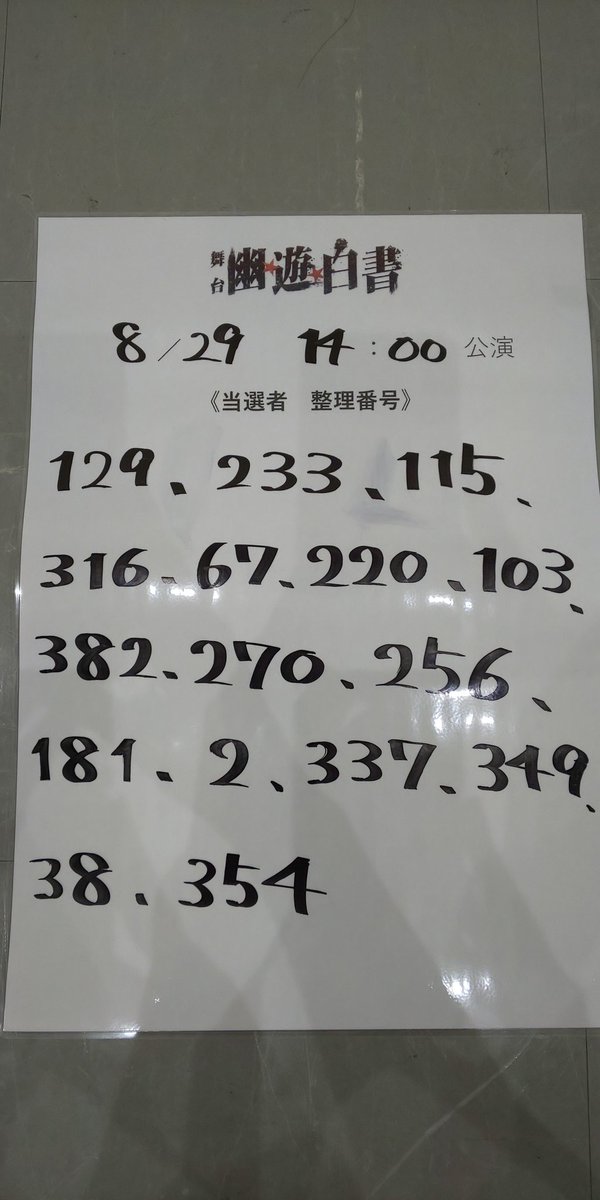 舞台 幽☆遊☆白書
8/29 14:00 公演
《当選者 整理番号》
129、233、115、
316、67、220、103、
382、270、256、
181、2、337、349、
38、354